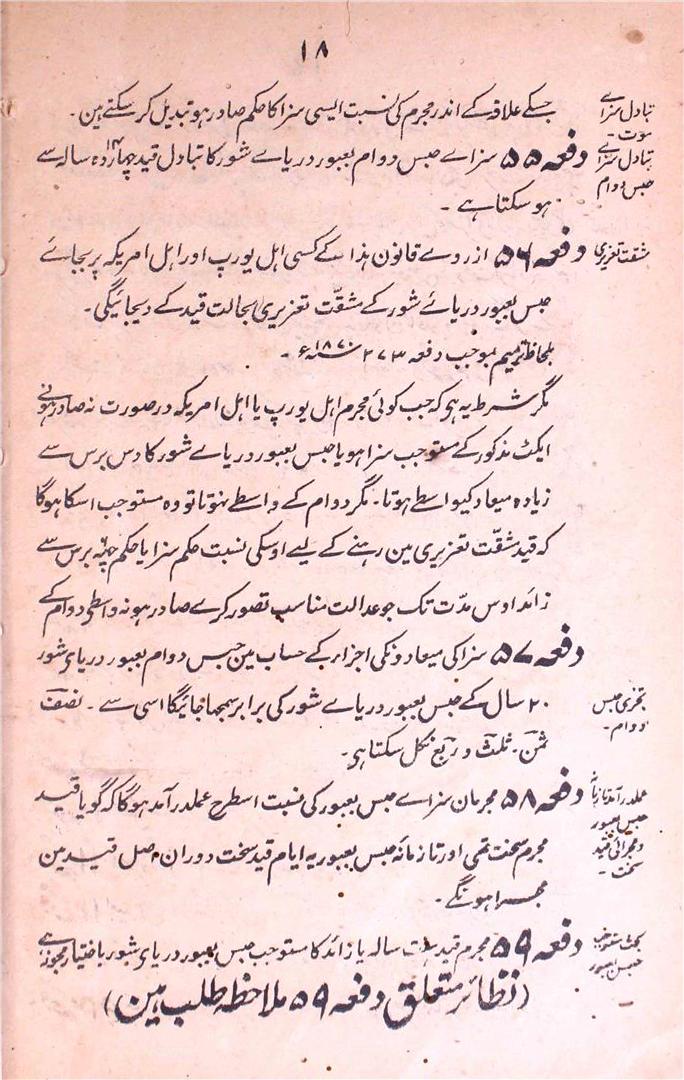 ۱۸
جسکے علاقہ کے اندر مجرم کی نسبت ایسی سزا کا حکم صادر ہو تبدیل کر سکتے ہین۔
تبادل سزاے
موت۔
دفعہ ۵۵ سزاے حبس دوام بعبور دریاے شور کا تبادل قید چہاردہ سالہ سے
تبادل سزاے
حبس دوام
ہو سکتا ہے ۔
دفعہ ۵۶ ازروے قانون ہذا کے کسی اہل یورپ اور اہل امریکہ پر بجائے
مشقت تعزیری
حبس بعبور دریائے شور کے مشقّت تعزیری بحالت قید کے دیجائیگی۔
بلحاظ ترمیم بموجب دفعہ ۲۷۳ ۱۸۷۰ء ۔
مگر شرط یہ ہی کہ جب کوئی مجرم اہل یورپ یا اہل امریکہ درصورت نہ صادر ہونے
ایکٹ مذکور کے مستوجب سزا ہو یا حبس بعبور دریاے شور کا دس برس سے
زیادہ میعاد کیواسطے ہوتا۔ مگر دوام کے واسطے نہوتا تو وہ مستوجب اسکا ہوگا
کہ قید مشقّت تعزیری مین رہنے کے لیے اوسکی نسبت حکم سزا یا حکم چھہ برس سے
زائد اوس مدّت تک جو عدالت مناسب تصور کرے صادر ہو نہ واسطی دوام کے
دفعہ ۵۷ سزا کی میعادونکی اجزار کے حساب مین حبس دوام بعبور دریای شور
۲۰ سال کے حبس بعبور دریاے شور کی برابر سمجھا جائیگا اسی سے ۔ نصف
تجزی حبس
دوام۔
ثمن۔ ثلث و ربع نکل سکتا ہی۔
دفعہ ۵۸ مجرمان سزاے حبس بعبور کی نسبت اسطرح عملدرآمد ہوگا کہ گویا قید
عملدرآمد تازمانہ
حبس بعبور
و مجرائی قید
سخت ۔
مجرم سخت تھی اور تا زمانہ حبس بعبور یہ ایام قید سخت دوران اصل قید مین
مجرا ہونگے۔
دفعہ ۵۹ مجرم قید سالہ یا زائد کا مستوجب حبس بعبور دریای شور باختیار مجوزہ ہے
حبس بعبور
(نظائر متعلق دفعہ ۵۹ ملاحظہ طلب ہین)